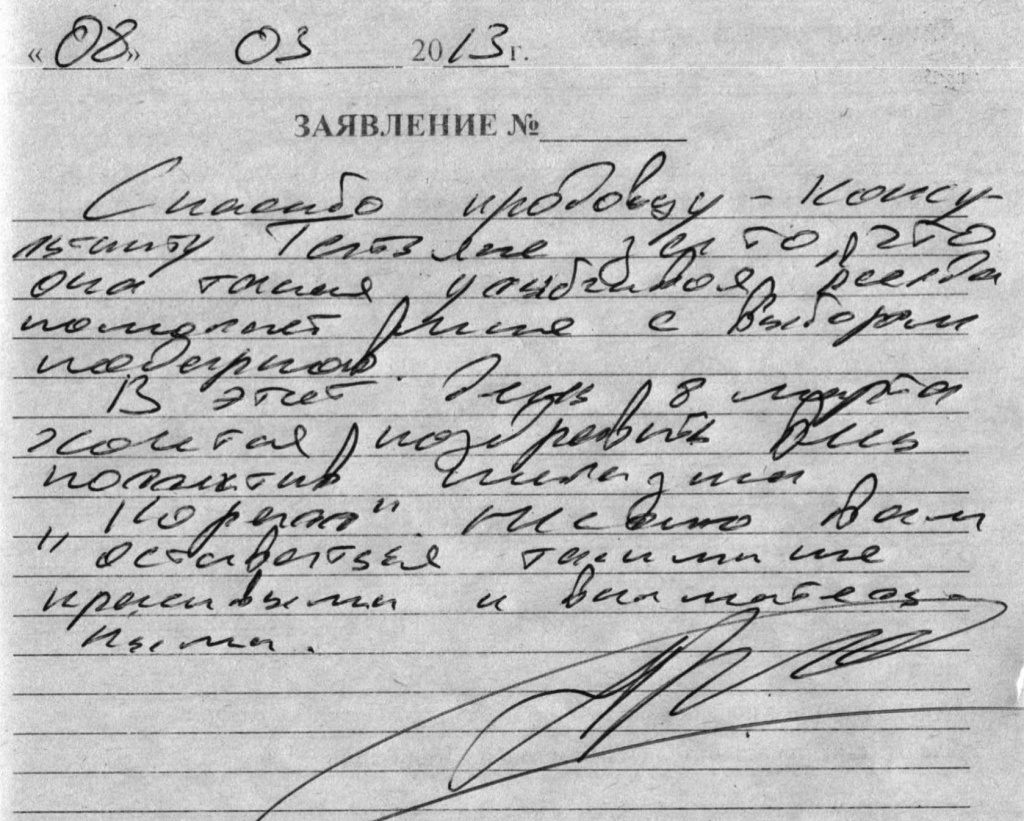 «08» 03 2013 г.
ЗАЯВЛЕНИЕ №
Спасибо продовцу - консу-
льтанту Татьяне за то, что
она такая улыбчивая, всегда
помогает мне с выбором
подарков.
В этот день 8 марта
хочется поздравить весь
коллектив магазина
"Корали". Желаю вам
оставаться такими же
красивыми и вниматель-
ными.